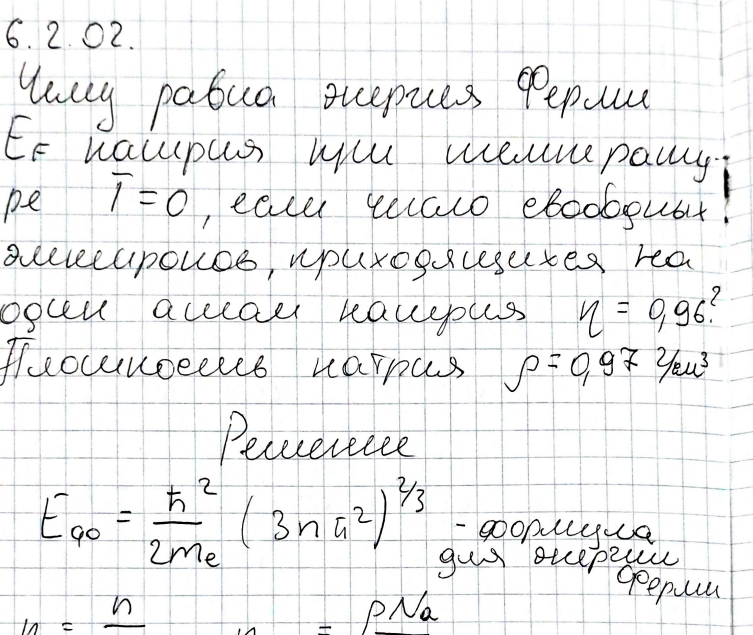 6.2.02.
Чему равна энергия Ферми
E_F натрия при температу-
ре T=0, если число свободных
электронов, приходящихся на
один атом натрия η = 0,96?
Плотность натрия ρ=0,97 г/см³
Решение
E_фо = ħ²/2mₑ (3nπ²)^2/3 - формула
для энергии
Ферми
n
ρNa